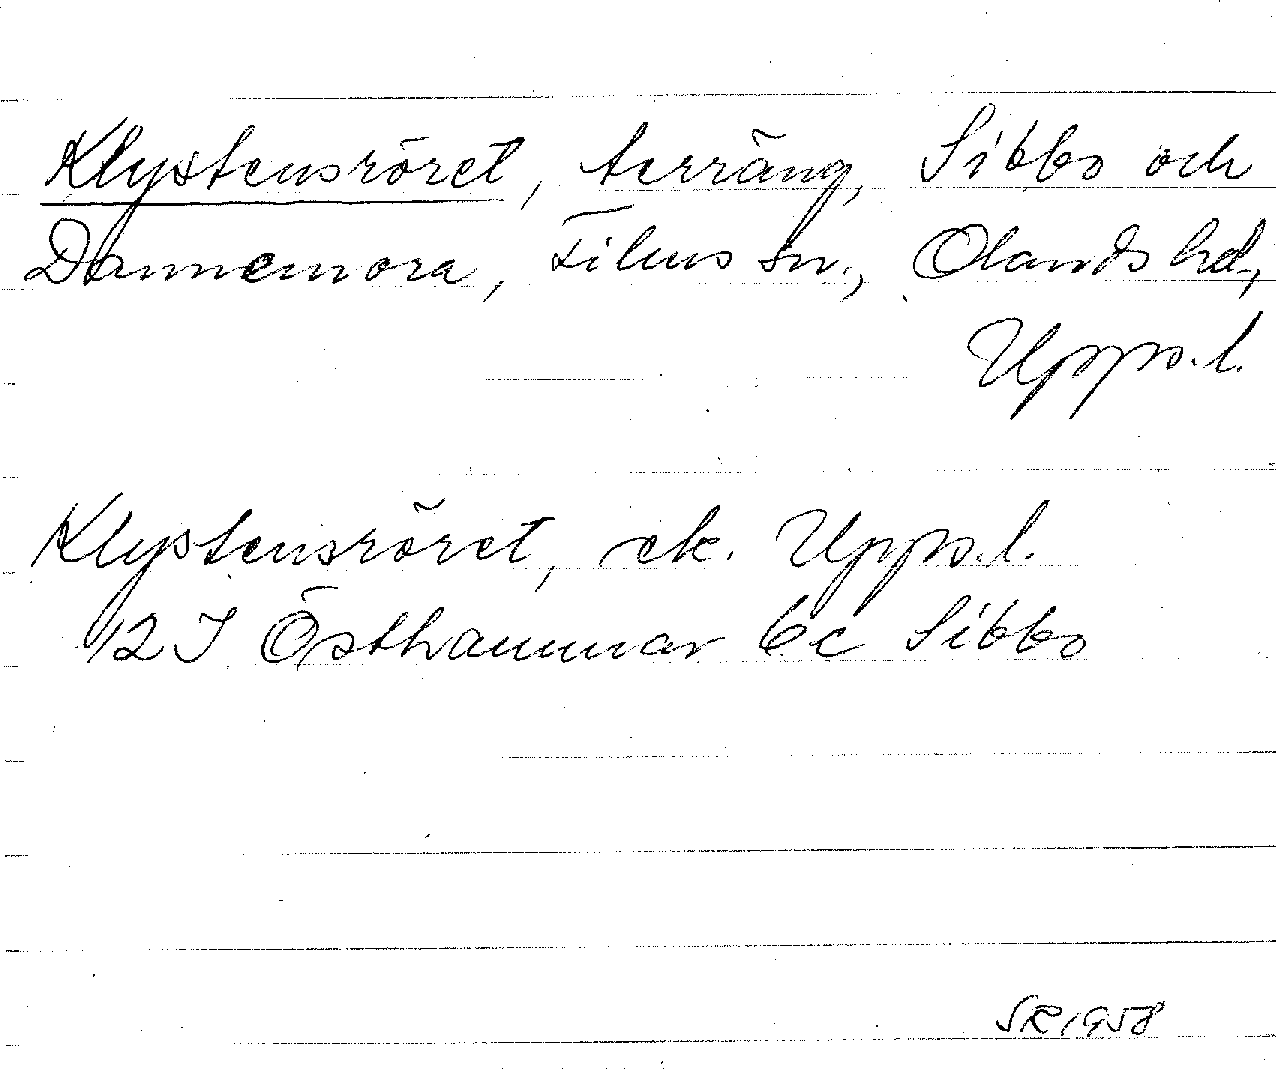 Klystensröret, terräng, Sibbo och
Dannemora, Films sn., Olands hd.,
Upps.l.
Klystensröret, ek. Upps.l.
12I Östhammar 6c Sibbo
SR 1958